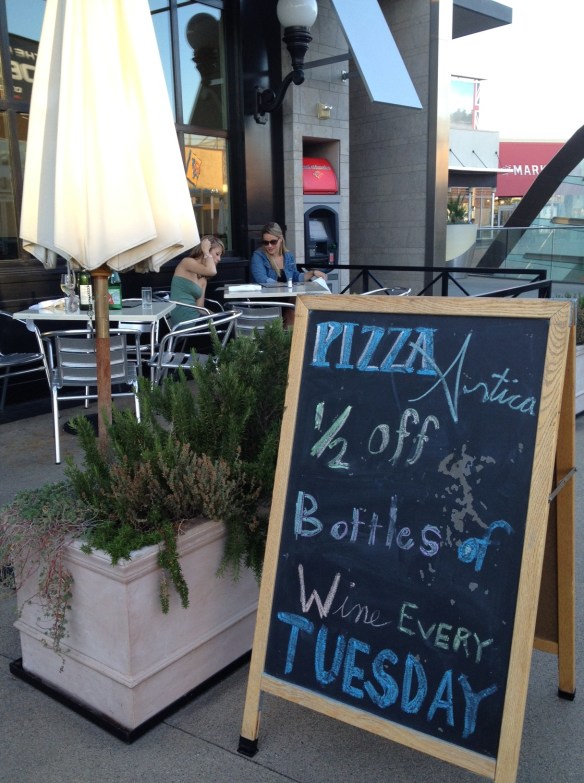 PIZZA Antica
1/2 off
Bottles of
Wine EVERY
TUESDAY
MAR